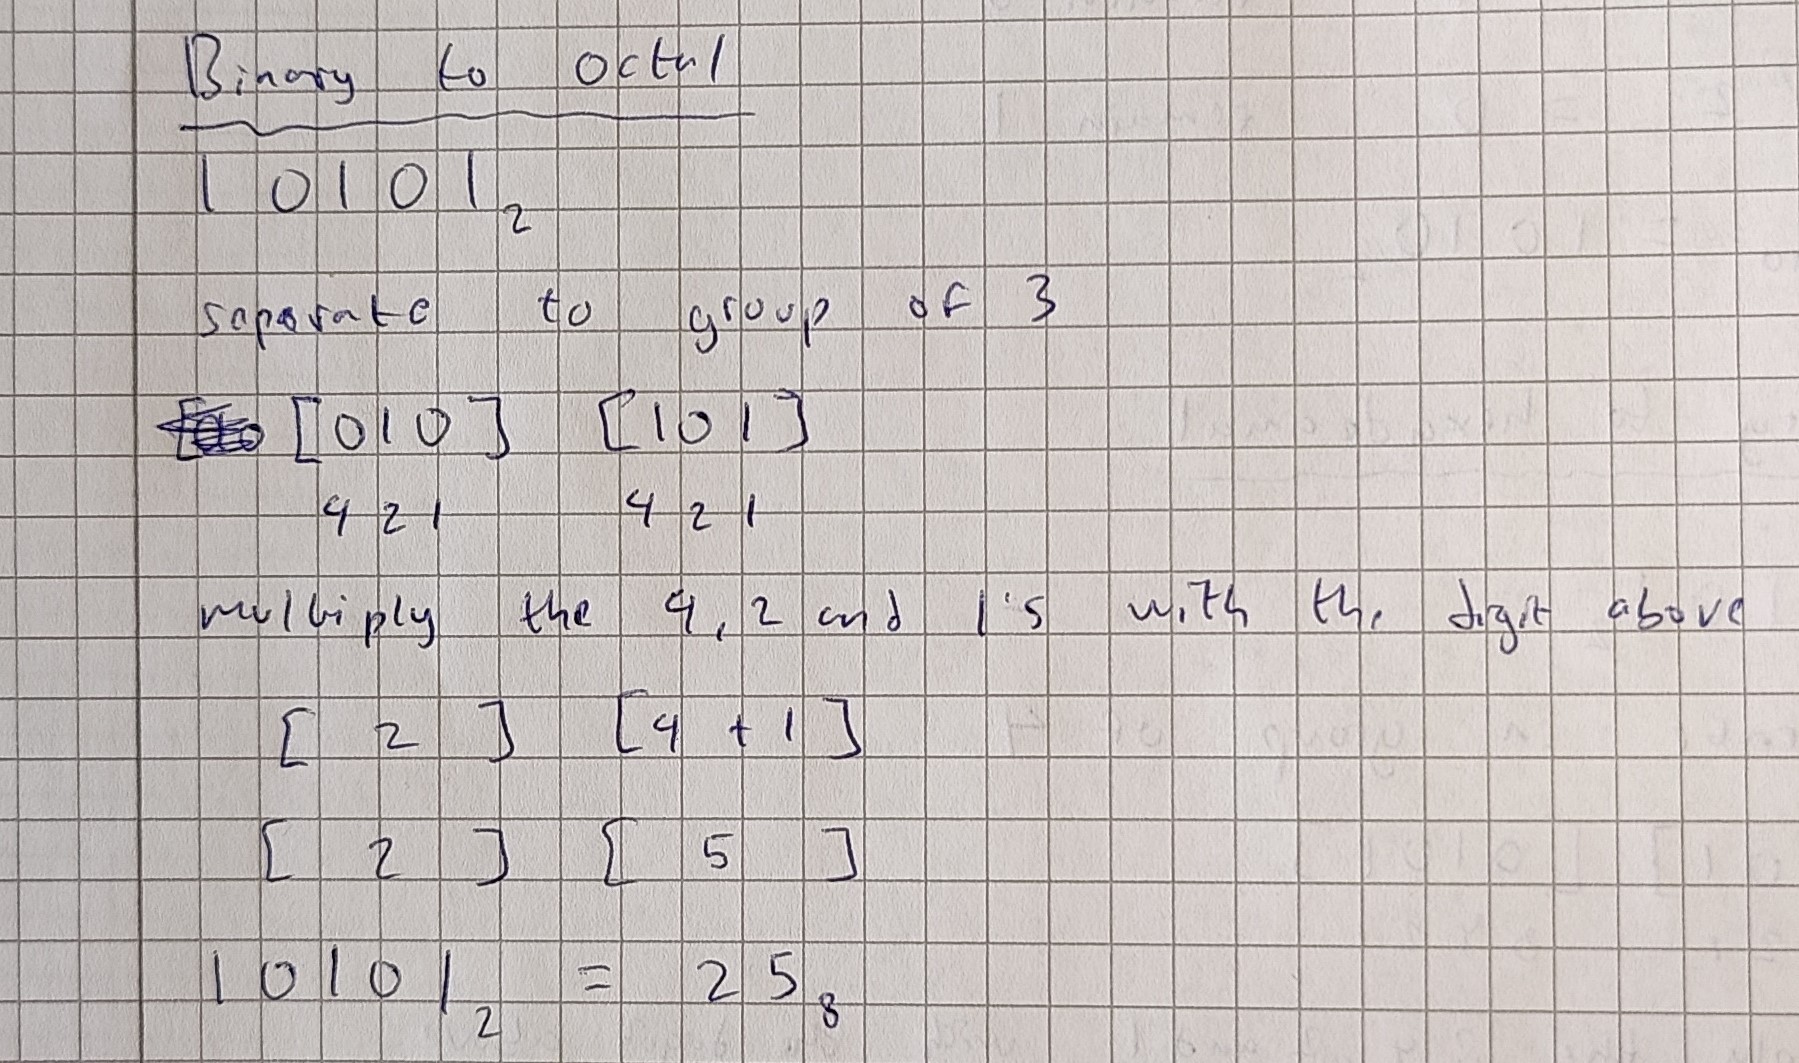 Binary to octal
10101₂
saparate to group of 3
[010] [101]
4 2 1 4 2 1
multiply the 4, 2 and 1's with the digit above
[ 2 ] [4 + 1]
[ 2 ] [ 5 ]
10101₂ = 25₈